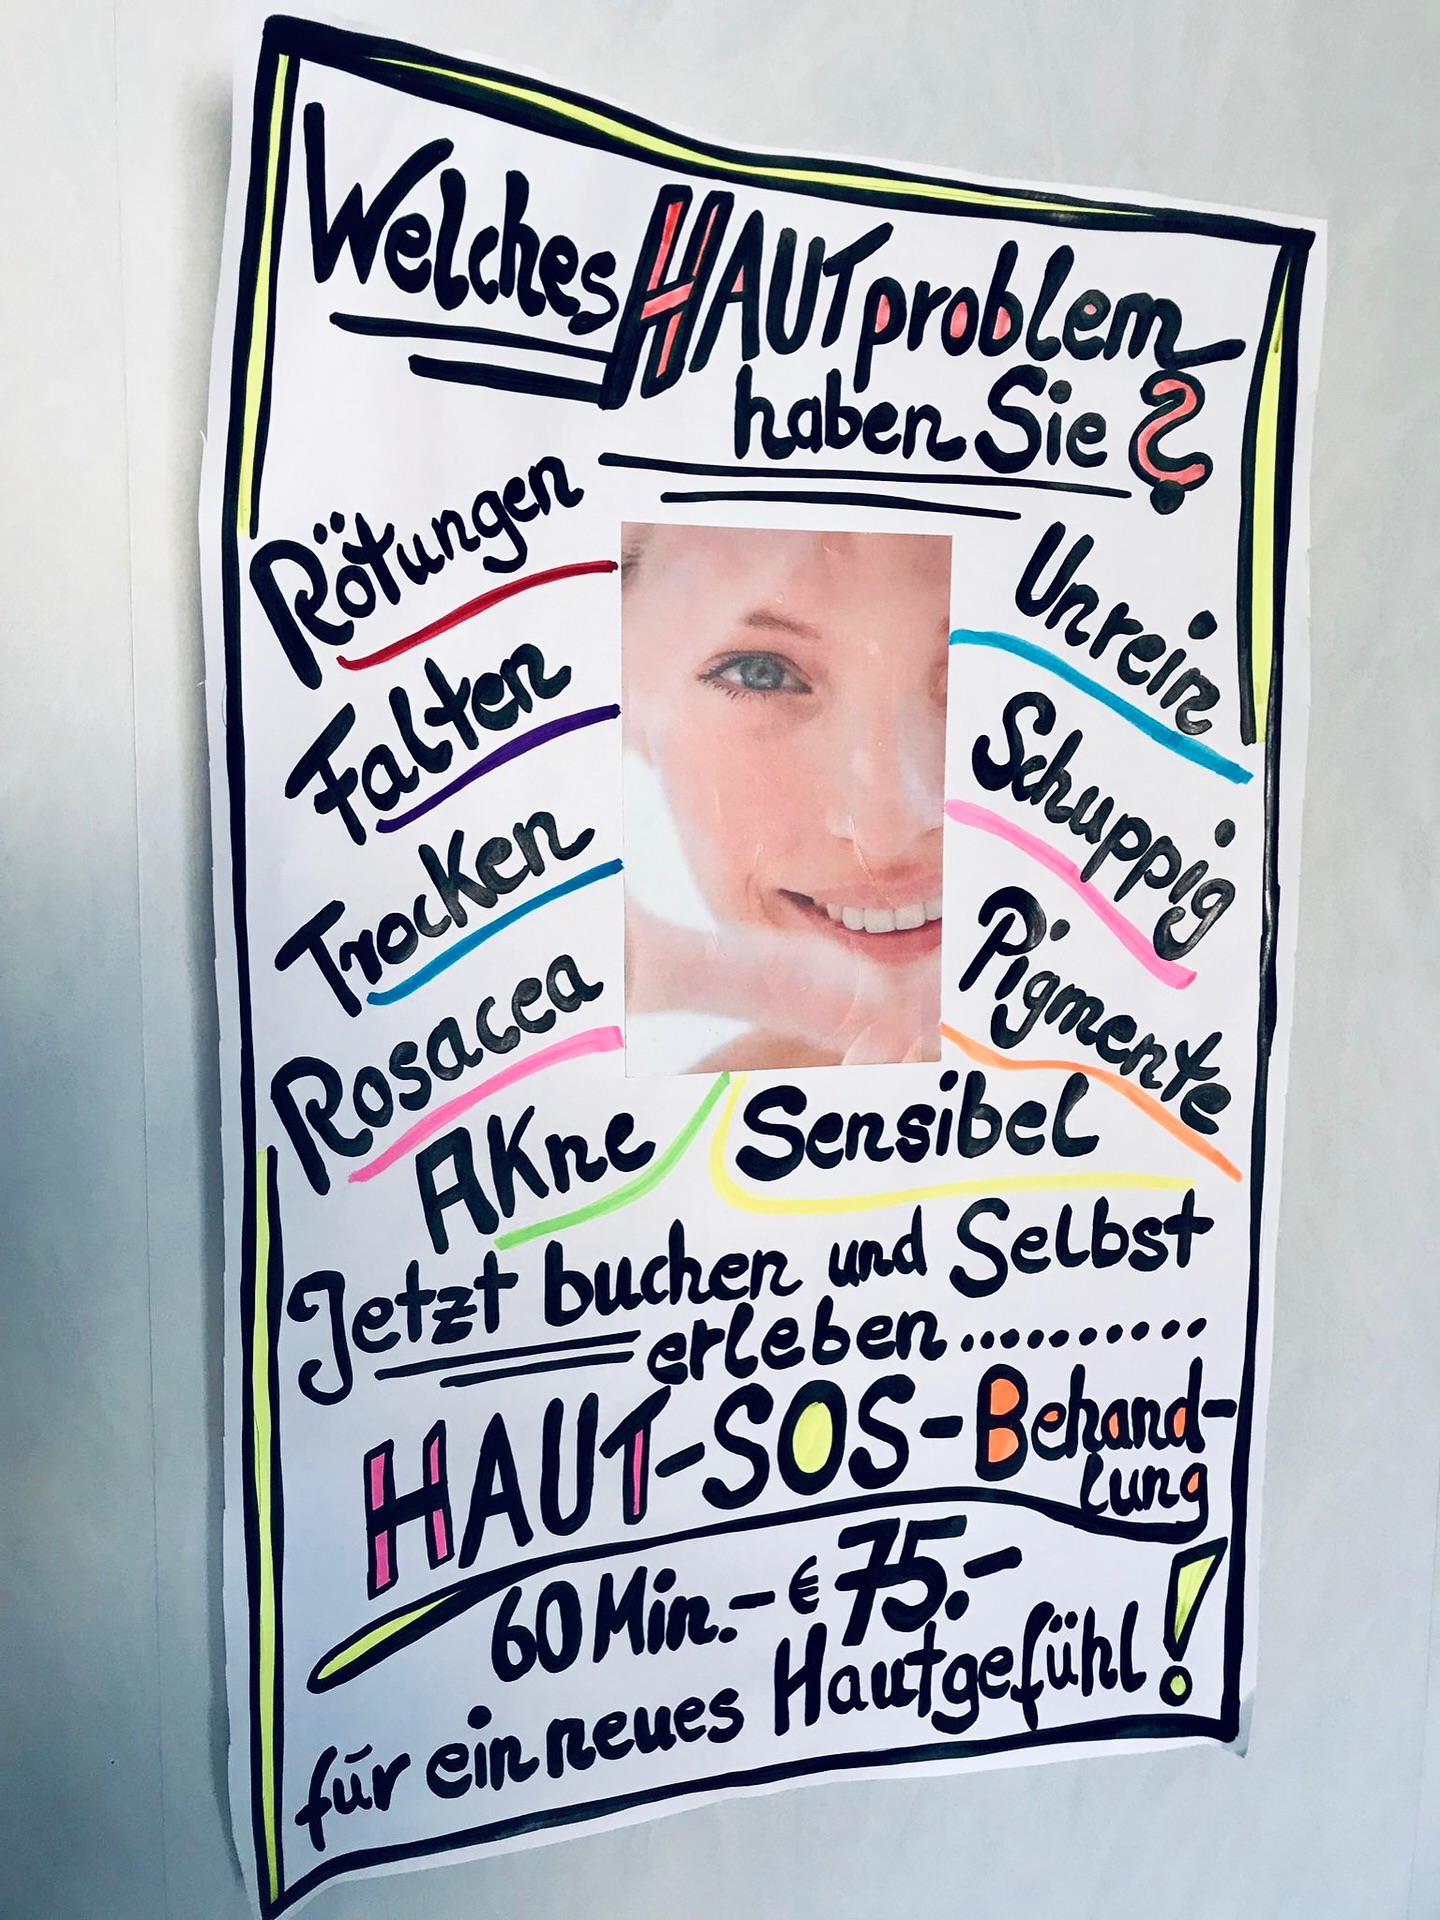 Welches HAUTproblem
haben Sie?
Rötungen
Falten
Trocken
Rosacea
Akne
Unrein
Schuppig
Pigmente
Sensibel
Jetzt buchen und Selbst
erleben..........
HAUT-SOS-Behand-
lung
60 Min.- € 75.-
für ein neues Hautgefühl!